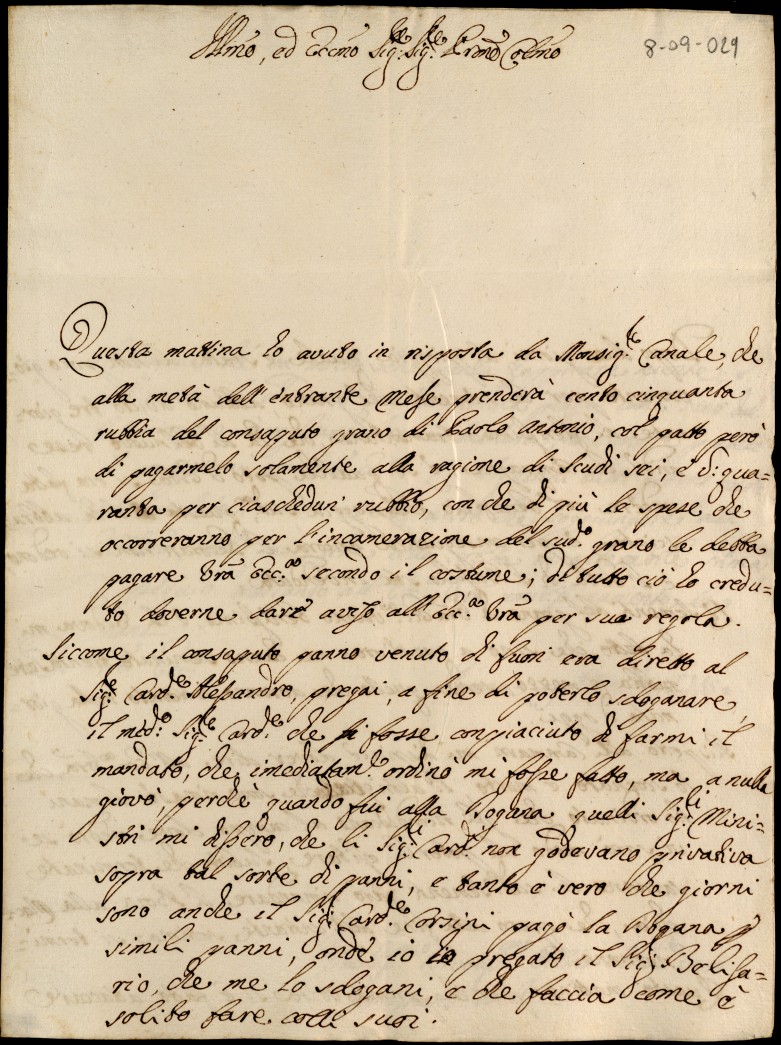 Illmo, ed Eccmo Sig:re Sig:re Prone Colmo
8-09-029
Questa mattina ho avuto in risposta da Monsig:re Canale, che
alla metà dell'entrante Mese prenderà cento cinquanta
rubbia del consaputo grano di Paolo Antonio, col patto però
di pagarmelo solamente alla ragione di scudi sei, e b: qua=
ranta per ciaschedun rubbio, con che di più le spese che
occorreranno per l'incamerazione del sud:o grano le debba
pagare Vra Ecc:za secondo il costume; di tutto ciò ho credu=
to doverne dare aviso all'Ecc:za Vra per sua regola.
Siccome il consaputo panno venuto di fuori era diretto al
Sig:re Card:le Alessandro, pregai, a fine di poterlo sdoganare,
il med:o Sig:re Card:le che si fosse conpiaciuto di farmi il
mandato, che imediatam:te ordinò mi fosse fatto, ma a nulla
giovò, perché quando fui alla Dogana quelli Sig:ri Mini=
stri mi dissero, che li Sig:ri Card:li non godevano privativa
sopra tal sorte di panni, e tanto è vero che giorni
sono anche il Sig:re Card:le Corsini pagò la Dogana p
simili panni, onde io ho pregato il Sig:re Belisa=
rio, che me lo sdogani, e che faccia come è
solito fare colli suoi.